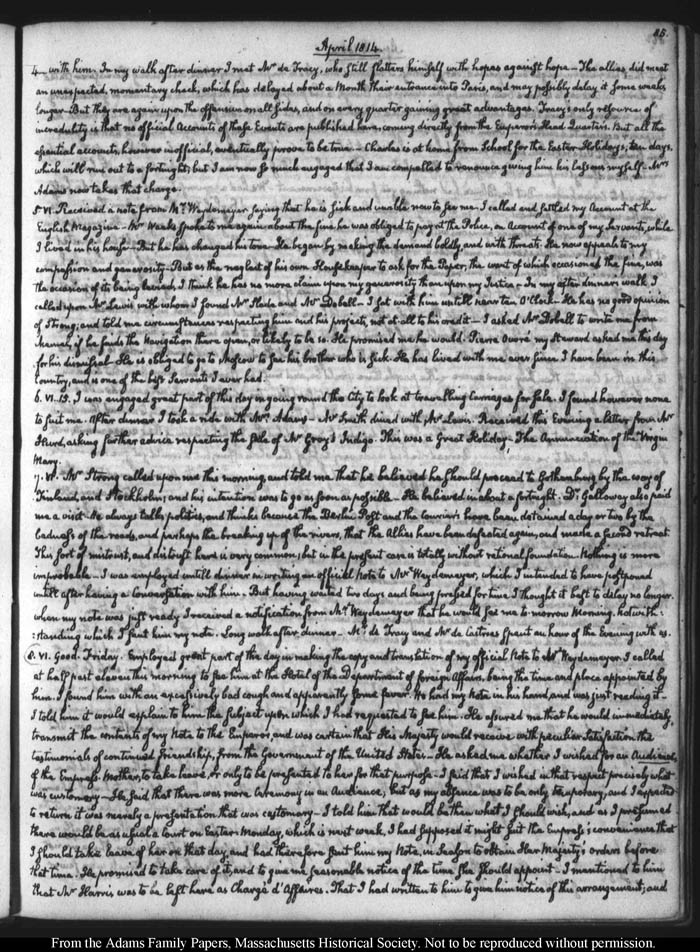 85.
April 1814.
4. with him. In my walk after dinner I met Mr. de Tracy, who still flatters himself with hopes against hope – The allies did meet
an unexpected, momentary check, which has delayed about a Month their entrance into Paris, and may possibly delay it some weeks
longer – But they are again upon the offensive on all sides, and on every quarter gaining great advantages. Tracy's only resource of
incredulity is that no official Accounts of these Events are published here, coming directly from the Emperor's Head Quarters. But all the
essential accounts, however unofficial, eventually prove to be true – Charles is at home from School for the Easter Holidays; ten days,
which will run out to a fortnight; but I am now so much engaged that I am compelled to renounce giving him his lessons myself – Mrs.
Adams now takes that charge.
5. VI. Received a note from Mr. Weydemeyer saying that he is sick and unable now to see me. I called and settled my Account at the
English Magazine – Mr. Wards spoke to me again about the fine he was obliged to pay at the Police, on Account of one of my Servants, while
I lived in his house – But he has changed his tone – He began by making the demand boldly and with threats. He now appeals to my
compassion and generosity – But as the neglect of his own Housekeeper to ask for the Paper, the want of which occasioned the fine, was
the occasion of its being levied, I think he has no more claim upon my generosity than upon my Justice – In my after dinner walk I
called upon Mr. Lewis with whom I found Mr. Slade and Mr. Dobell – I sat with him untill near ten O'Clock – He has no good opinion
of Strong; and told me circumstances respecting him and his project, not at all to his credit – I asked Mr. Dobell to write me from
if he finds the Navigation there open, or likely to be so. He promised me he would. Pierre my Steward asked me this day
for his dismission – He is obliged to go to Moscow to see his brother who is sick – He has lived with me ever since I have been in this
Country, and is one of the best Servants I ever had.
6. VI. 15. I was engaged great part of this day in going round the City to look at travelling Carriages for sale. I found however none
to suit me. After dinner I took a ride with Mrs. Adams – Mr. Smith dined with Mr. Lewis. Received this Evening a letter from Mr.
Hurd, asking further advice respecting the sale of Mr. Gray's Indigo. This was a Great Holiday; The Annunciation of the Virgin
Mary.
7. VI. Mr. Strong called upon me this morning, and told me that he believed he should proceed to Gothenburg by the way of
Finland, and Stockholm; and his intention was to go as soon as possible – He believed in about a fortnight. Dr. Galloway also paid
me a visit – He always talks politics, and thinks because the Berlin Post and the Couriers have been detained a day or two by the
badness of the roads, and perhaps the breaking up of the rivers, that the Allies have been defeated again, and made a second retreat
This sort of mistrust, and distrust here is very common; but in the present case is totally without rational foundation – Nothing is more
improbable – I was employed untill dinner in writing an official Note to Mr. Weydemeyer, which I intended to have postponed
untill after having a Conversation with him. But having waited two days and being pressed for time, I thought it best to delay no longer.
when my note was just ready I received a notification from Mr. Weydemeyer that he would see me to-morrow Morning. notwith:
:standing which I sent him my note. Long walk after dinner – Mr. de Tracy and Mr. de spent an hour of the Evening with us.
8. VI. Good Friday. Employed great part of the day in making the copy and translation of my official Note to Mr. Weydemeyer. I called
at half past eleven this morning to see him at the Hotel of the Department of foreign Affairs, being the time and place appointed by
him. I found him with an excessively bad cough and apparently some fever. He had my Note in his hand, and was just reading it –
I told him it would explain to him the subject upon which I had requested to see him. He assured me that he would immediately
transmit the contents of my Note to the Emperor, and was certain that His Majesty would receive with peculiar satisfaction the
testimonials of continued friendship, from the Government of the United States – He asked me whether I wished for an Audience,
of the Empress-Mother, to take leave, or only to be presented to her for that purpose – I said that I wished in that respect precisely what
was customary – He said that there was more ceremony in an Audience; but as my absence was to be only temporary, and I expected
to return it was merely a presentation that was customary – I told him that would be then what I should wish, and as I presumed
there would be as usual a Court on Easter-Monday, which is next week, I had supposed it might suit the Empress's convenience that
I should take leave of her on that day, and had therefore sent him my Note, in season to obtain Her Majesty's orders before
that time. He promised to take care of it, and to give me seasonable notice of the time She should appoint – I mentioned to him
that Mr. Harris was to be left here as Chargé d'Affaires. That I had written to him to give him notice of this arrangement; and
From the Adams Family Papers, Massachusetts Historical Society. Not to be reproduced without permission.